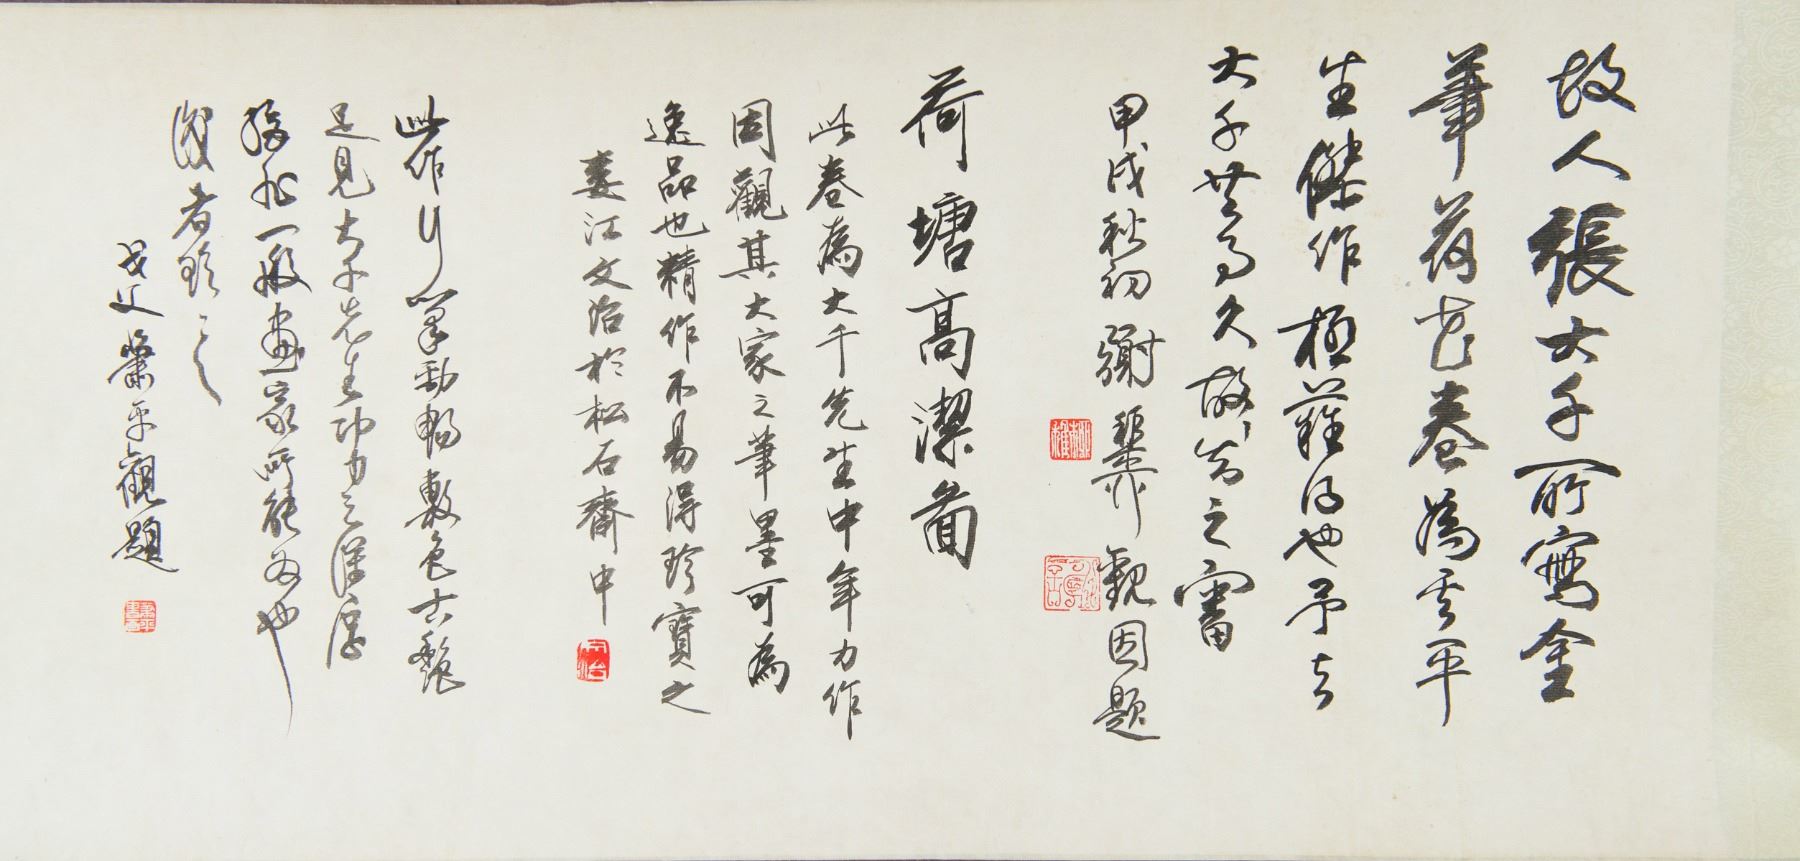 故人張大千所寫金
筆荷花卷為其平
生傑作極難得也予與
大千共事久故知之審
甲戌秋初謝稚柳觀因題
荷塘高潔圖
此卷為大千先生中年力作
因觀其大家之筆墨可為
逸品也精作不易得珍寶之
婁江文治於松石齋中
文治
此作行筆勁暢敷色古艷
足見大千先生功力之深厚
殊非一般畫家所能為也
後者珍之
戈父蕭平觀題